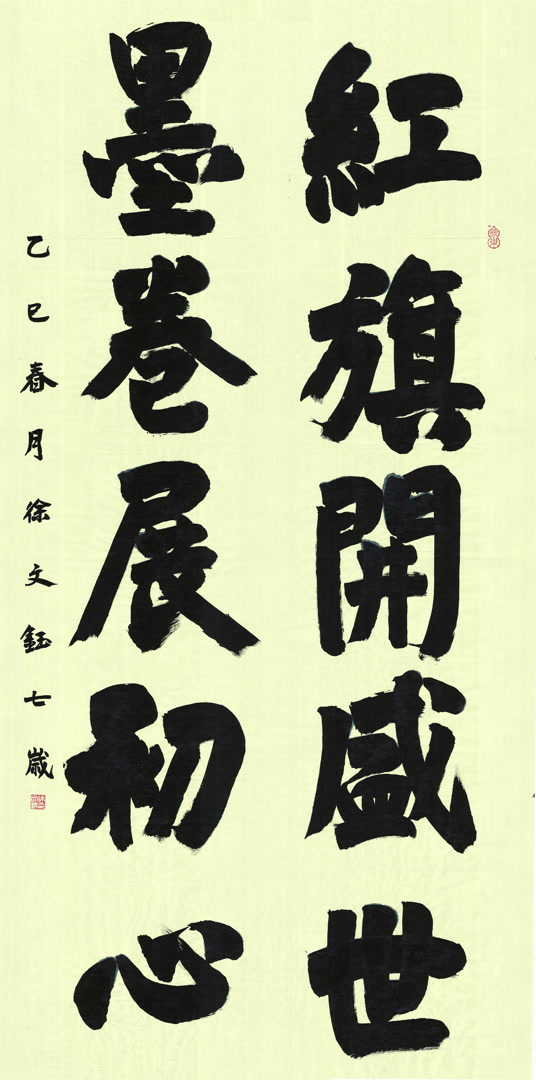 紅旗開盛世
墨卷展初心
乙巳春月徐文鈺七歲